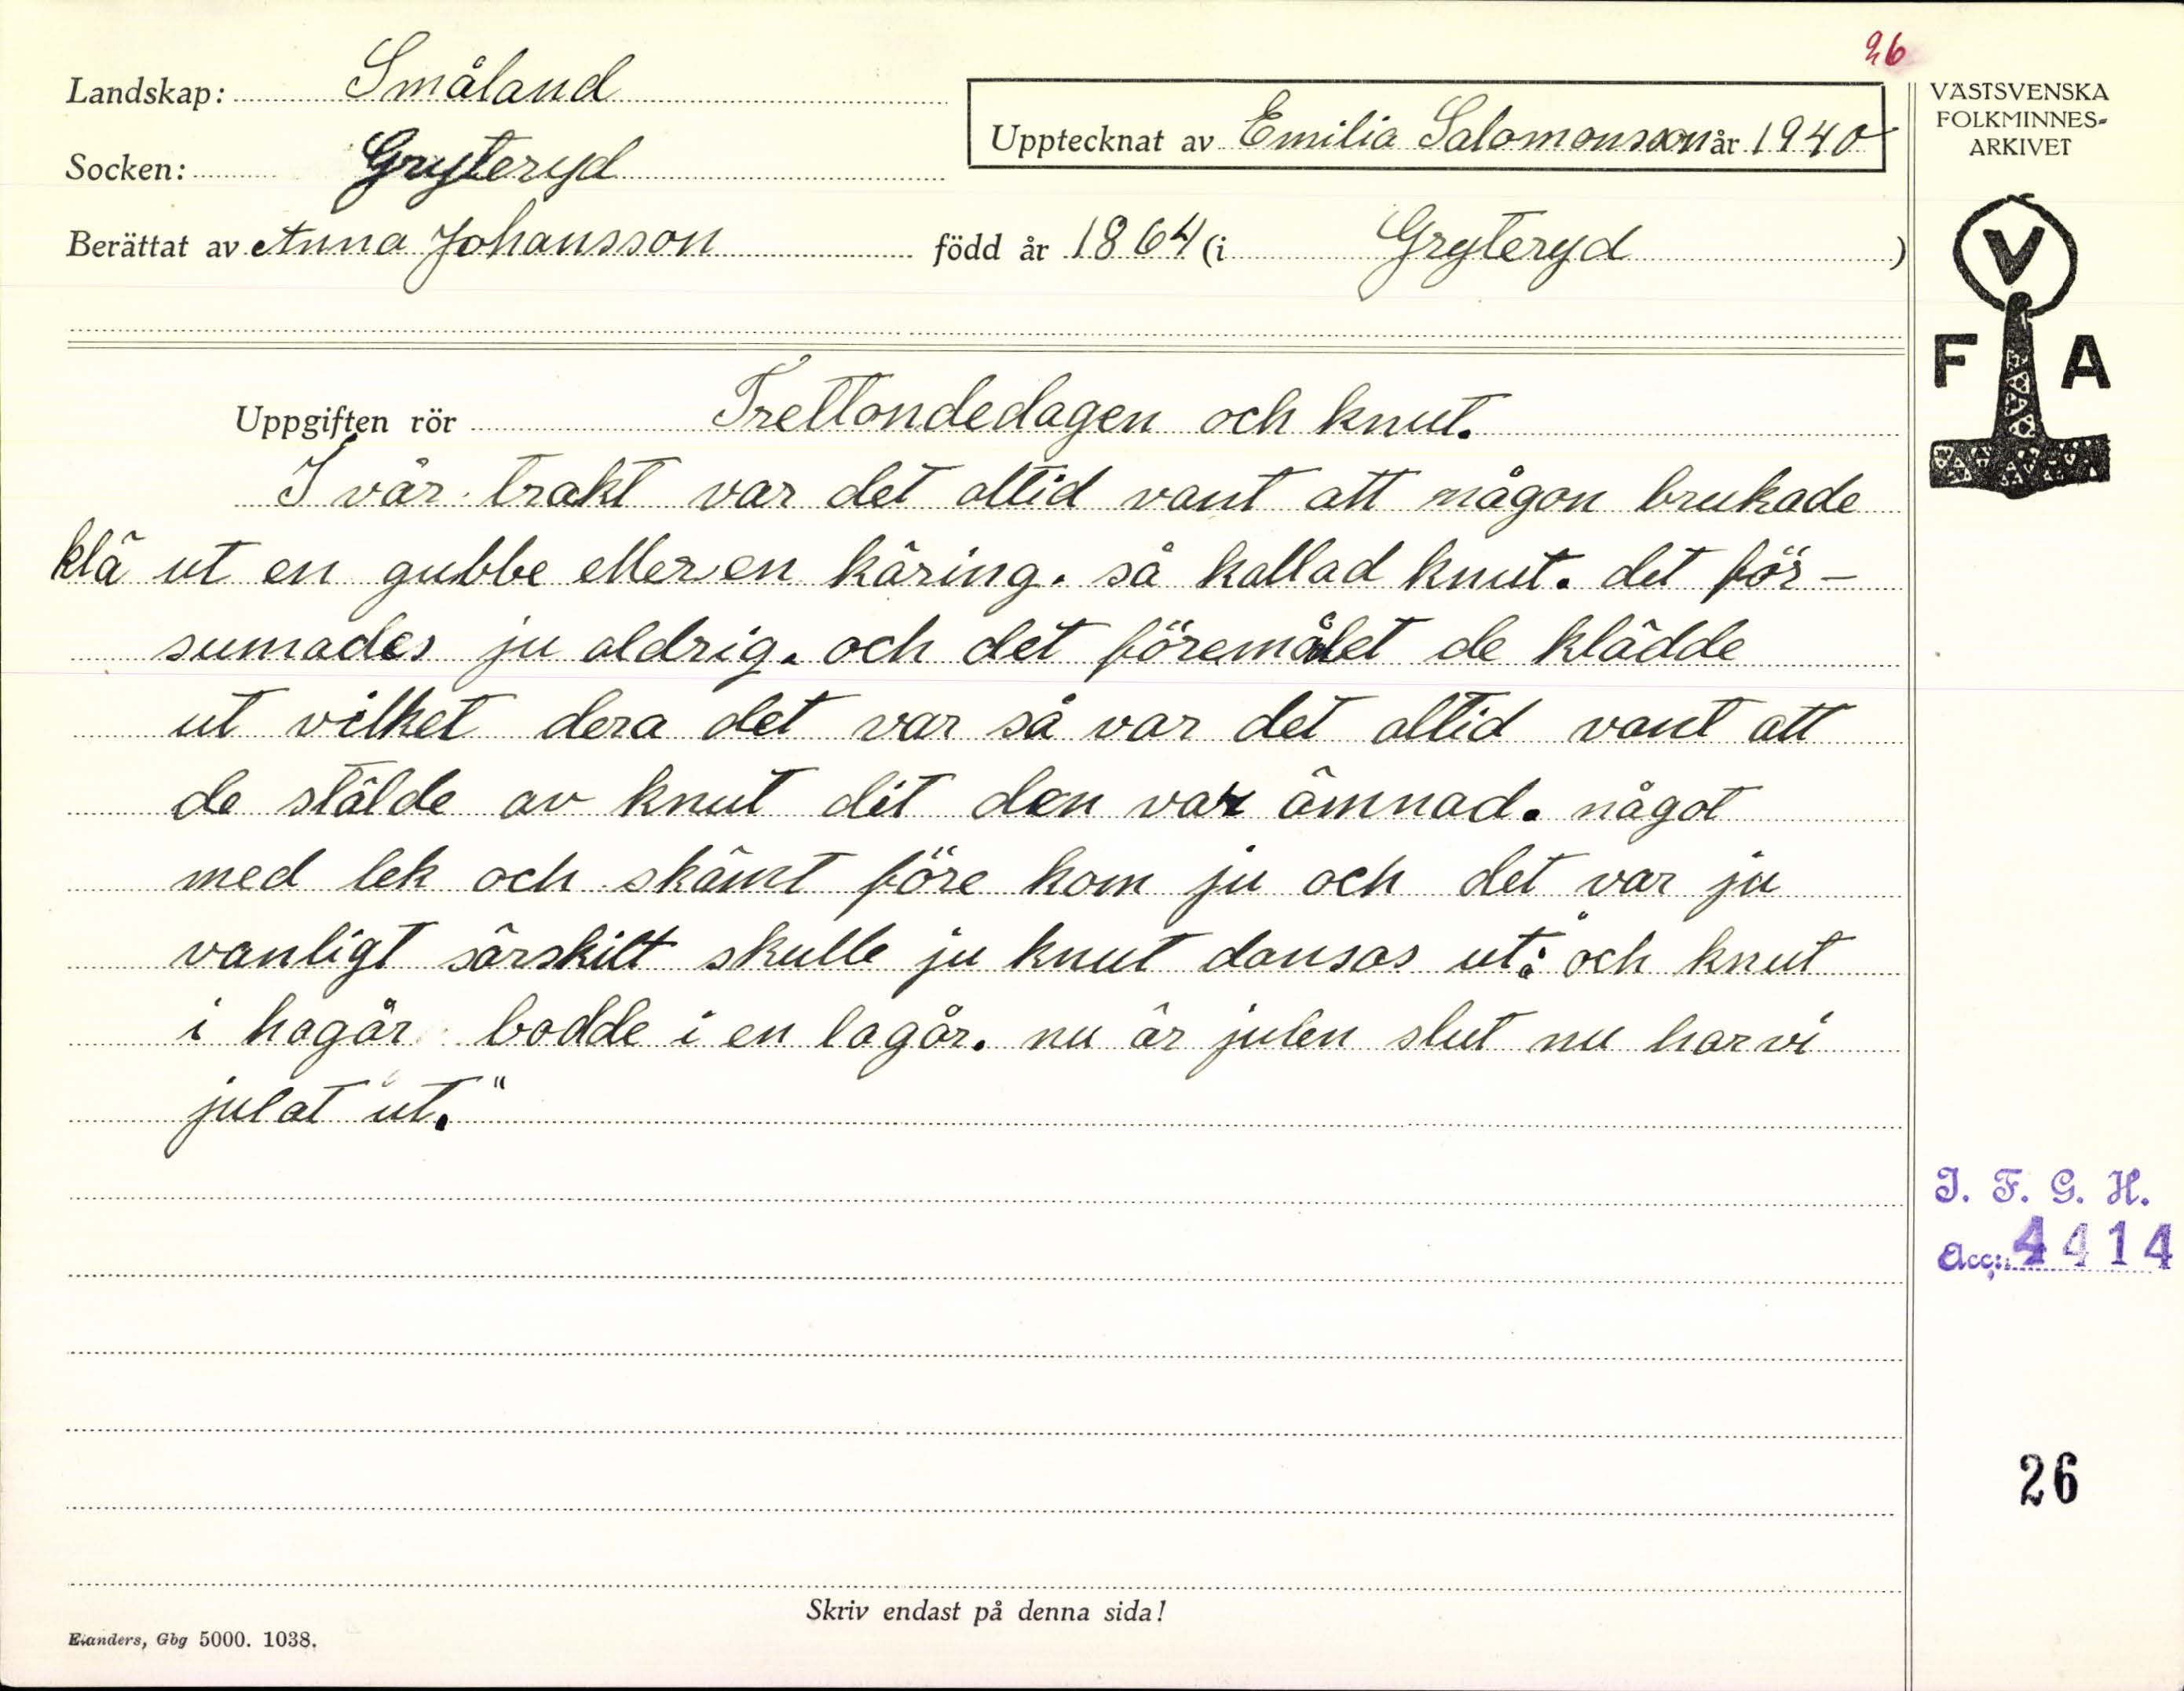 26
Landskap: Småland
Socken: Gryteryd
Upptecknat av Emilia Salomonsson år 1940
Berättat av Anna Johansson född år 1864 (i Gryteryd)
VÄSTSVENSKA
FOLKMINNES-
ARKIVET
V
F A
Uppgiften rör Trettondedagen och knut.
I vår trakt var det altid vant att någon brukade
klä ut en gubbe eller en käring. så kallad knut. det för-
sumades ju aldrig. och det föremålet de klädde
ut vilket dera det var så var det altid vant att
de stälde av knut dit den var ämnad. något
med lek och skämt före kom ju och det var ju
vanligt särskilt skulle ju knut dansas ut: "och knut
i hagår bodde i en lagår. nu är julen slut nu har vi
julat ut."
I. F. G. H.
Acc: 4414
26
Skriv endast på denna sida!
Elanders, Gbg 5000. 1038.